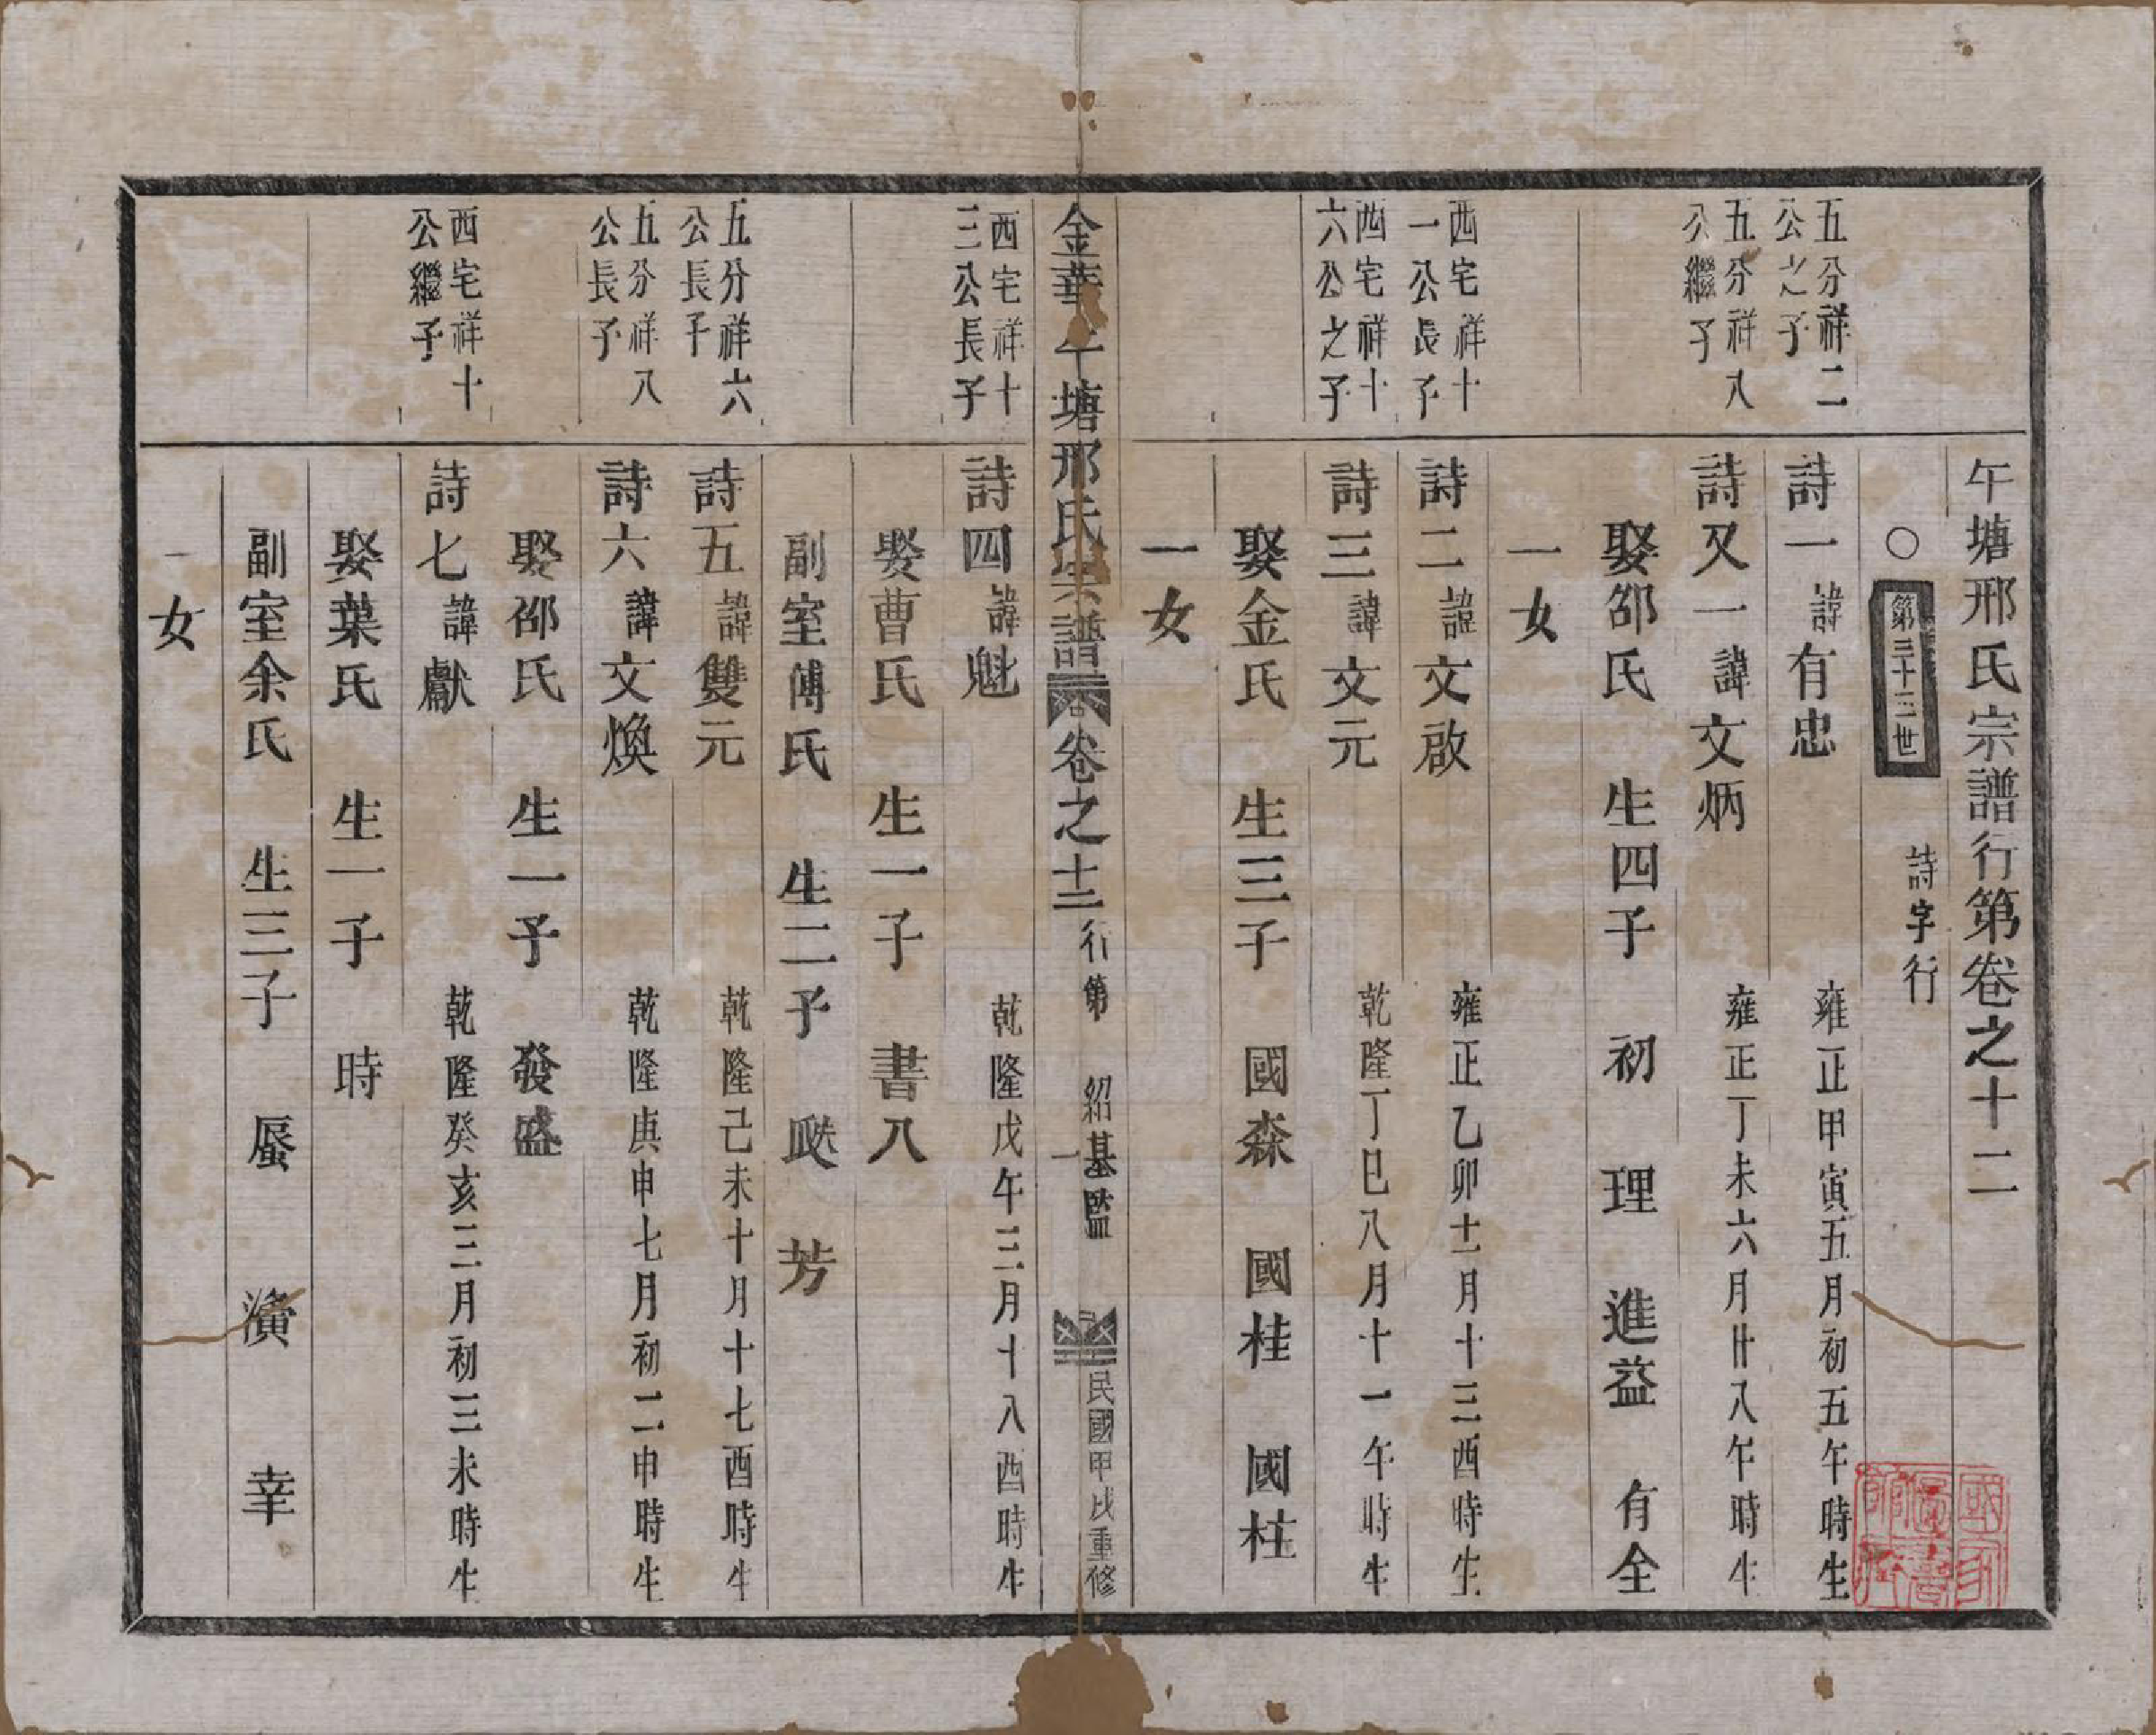 午塘邢氏宗譜行第卷之十二
○第三十三世 詩字行
五分祥二
公之子
詩一 諱有忠 雍正甲寅五月初五午時生
五分祥八
公繼子
詩又一 諱文炳 雍正丁未六月廿八午時生
娶邵氏 生四子 初 理 進益 有全
一女
西宅祥十
一公長子
詩二 諱文啟 雍正乙卯十二月十三酉時生
西宅祥十
六公之子
詩三 諱文元 乾隆丁巳八月十一午時生
娶金氏 生三子 國森 國桂 國柱
一女
金華午塘邢氏宗譜 卷之十二 行第 一 紹基監 民國甲戌重修
西宅祥十
三公長子
詩四 諱魁 乾隆戊午三月十八酉時生
娶曹氏 生一子 書八
副室傅氏 生二子 芳
五分祥六
公長子
詩五 諱雙元 乾隆己未十月十七酉時生
五分祥八
公長子
詩六 諱文煥 乾隆庚申七月初二申時生
娶邵氏 生一子 發盛
西宅祥十
公繼子
詩七 諱獻 乾隆癸亥三月初三未時生
娶葉氏 生一子 時
副室余氏 生三子 蜃 濱 幸
一女